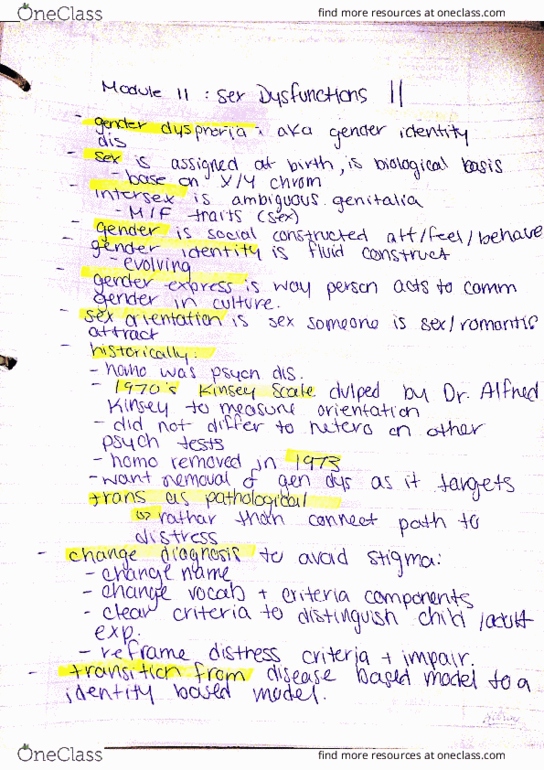 OneClass
find more resources at oneclass.com
Module 11 : Sex Dysfunctions ||
- gender dysphoria : aka gender identity
dis
- sex is assigned at birth, is biological basis
- base on X/Y chrom
- intersex is ambiguous genitalia
- M/F traits (sex)
- gender is social constructed att/feel/behave
- gender identity is fluid construct
- evolving
- gender express is way person acts to comm
gender in culture.
- sex orientation is sex someone is sex/romantic
attract
- historically:
- homo was psych dis.
- 1970's Kinsey Scale dvlped by Dr. Alfred
Kinsey to measure orientation
- did not differ to hetero on other
psych tests
- homo removed in 1973
- want removal of gen dys as it targets
trans as pathological
↳ rathar than connect path to
distress
- change diagnosis to avoid stigma:
- change name
- change vocab + criteria components
- clear criteria to distinguish child/adult
exp.
- reframe disthess criteria + impair.
- transition from disease based model to a
identity based model.
OneClass
find more resources at oneclass.com